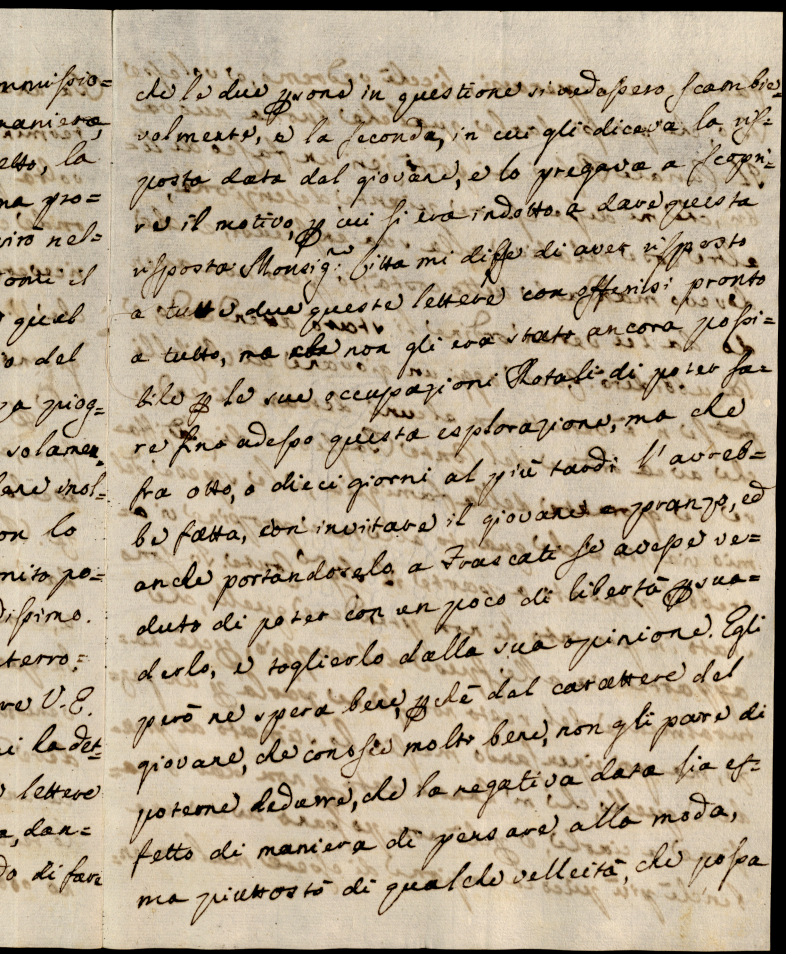 mmissio=
maniera,
etto, la
na pro=
giro nel=
il
qual
o del
za piog=
solamen,
inol=
on lo
nito po=
dissimo.
terro,=
re V. E.
i la det=
lettere
a, dan=
do di fare
che le due ꝑsone in questione si vedessero scambie=
volmente, e la seconda, in cui gli diceva la ris=
posta data dal giovane, e lo pregava a scopri=
re il motivo, ꝑ cui si era indotto a dare questa
risposta. Monsig.r Litta mi disse di aver risposto
a tutte due queste lettere con offerirsi pronto
a tutto, ma non gli era stato ancora possi=
bile ꝑ le sue occupazioni Rotali, di poter fa=
re fino adesso questa esplorazione, ma che
fra otto, o dieci giorni al più tardi l'avreb=
be fatta, con invitare il giovane a pranzo, ed
anche portandoselo a Frascati se avesse ve=
duto di poter con un poco di libertà ꝑsua=
derlo, e toglierlo dalla sua opinione. Egli
però ne spera bene, ꝑchè dal carattere del
giovane, che conosce molto bene, non gli pare di
poterne dedurre, che la negativa data sia ef=
fetto di maniera di pensare alla moda,
ma piuttosto di qualche velleità, che possa